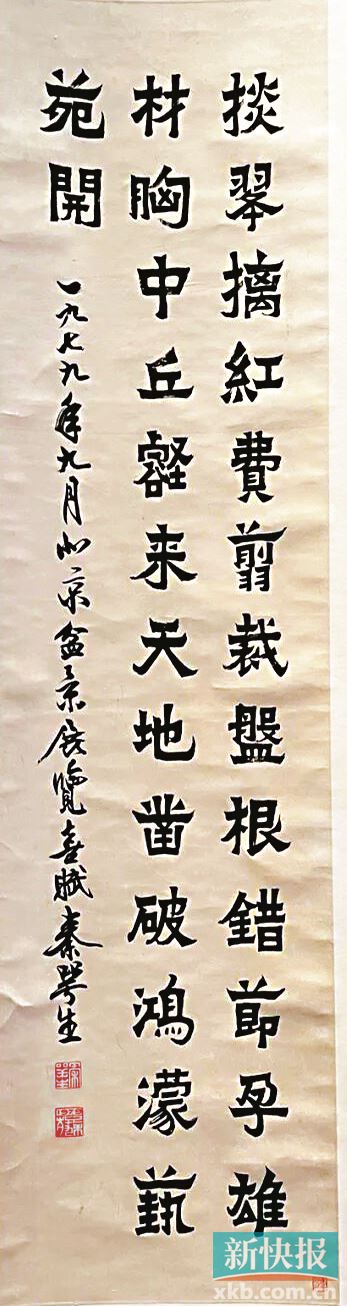 掞翠摛紅費翦裁盤根錯節孕雄
材胸中丘壑来天地凿破鴻濛蓺
苑開
一九七九年九月北京盆景展覽喜賦秦咢生
新快报
xkb.com.cn